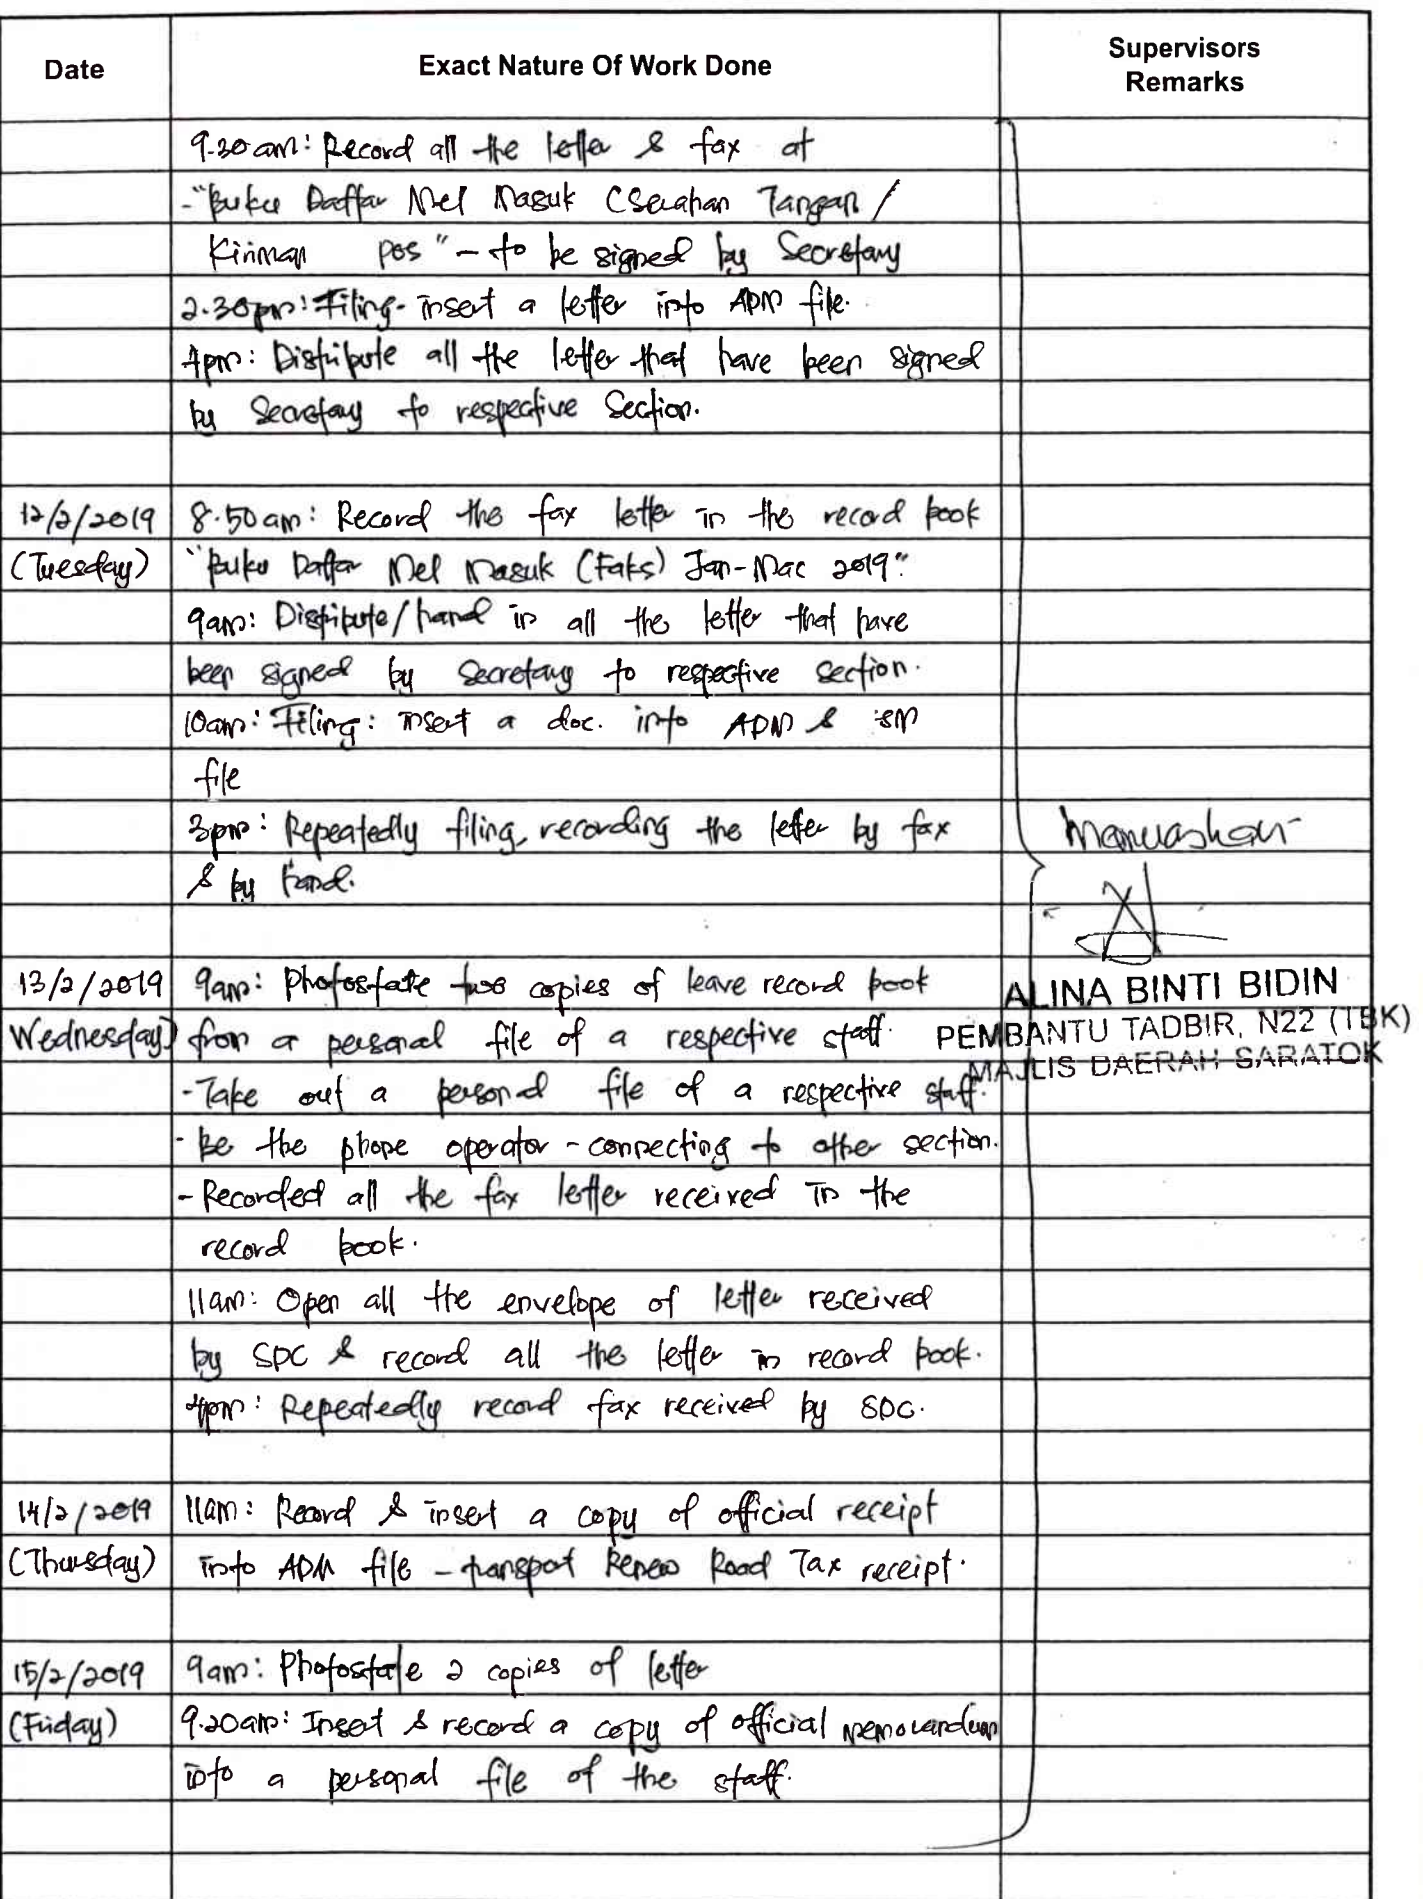 Date
Exact Nature Of Work Done
Supervisors
Remarks
9.30am: Record all the letter & fax at
-"Buku Daftar Mel Masuk (Serahan Tangan /
Kiriman pos" - to be signed by Secretary
2.30pm: Filing - insert a letter into ADM file.
4pm: Distribute all the letter that have been signed
by Secretary to respective Section.
12/2/2019
8.50am: Record the fax letter in the record book
(Tuesday)
"Buku Daftar Mel Masuk (Faks) Jan-Mac 2019".
9am: Distribute/hand in all the letter that have
been signed by Secretary to respective section.
10am: Filing: insert a doc. into ADM &
file
3pm: Repeatedly filing, recording the letter by fax
& by hand.
Memuaskan
13/2/2019
9am: Photostate two copies of leave record book
ALINA BINTI BIDIN
Wednesday)
from a personal file of a respective staff.
PEMBANTU TADBIR, N22 (TBK)
MAJLIS DAERAH SARATOK
- Take out a personal file of a respective staff.
- be the phone operator - connecting to other section.
- Recorded all the fax letter received in the
record book.
11am: Open all the envelope of letter received
by SDC & record all the letter in record book.
4pm: Repeatedly record fax received by SDC.
14/2/2019
11am: Record & insert a copy of official receipt
(Thursday)
into ADM file - transport Renew Road Tax receipt.
15/2/2019
9am: Photostate 2 copies of letter
(Friday)
9.20am: Insert & record a copy of official memorandum
into a personal file of the staff.